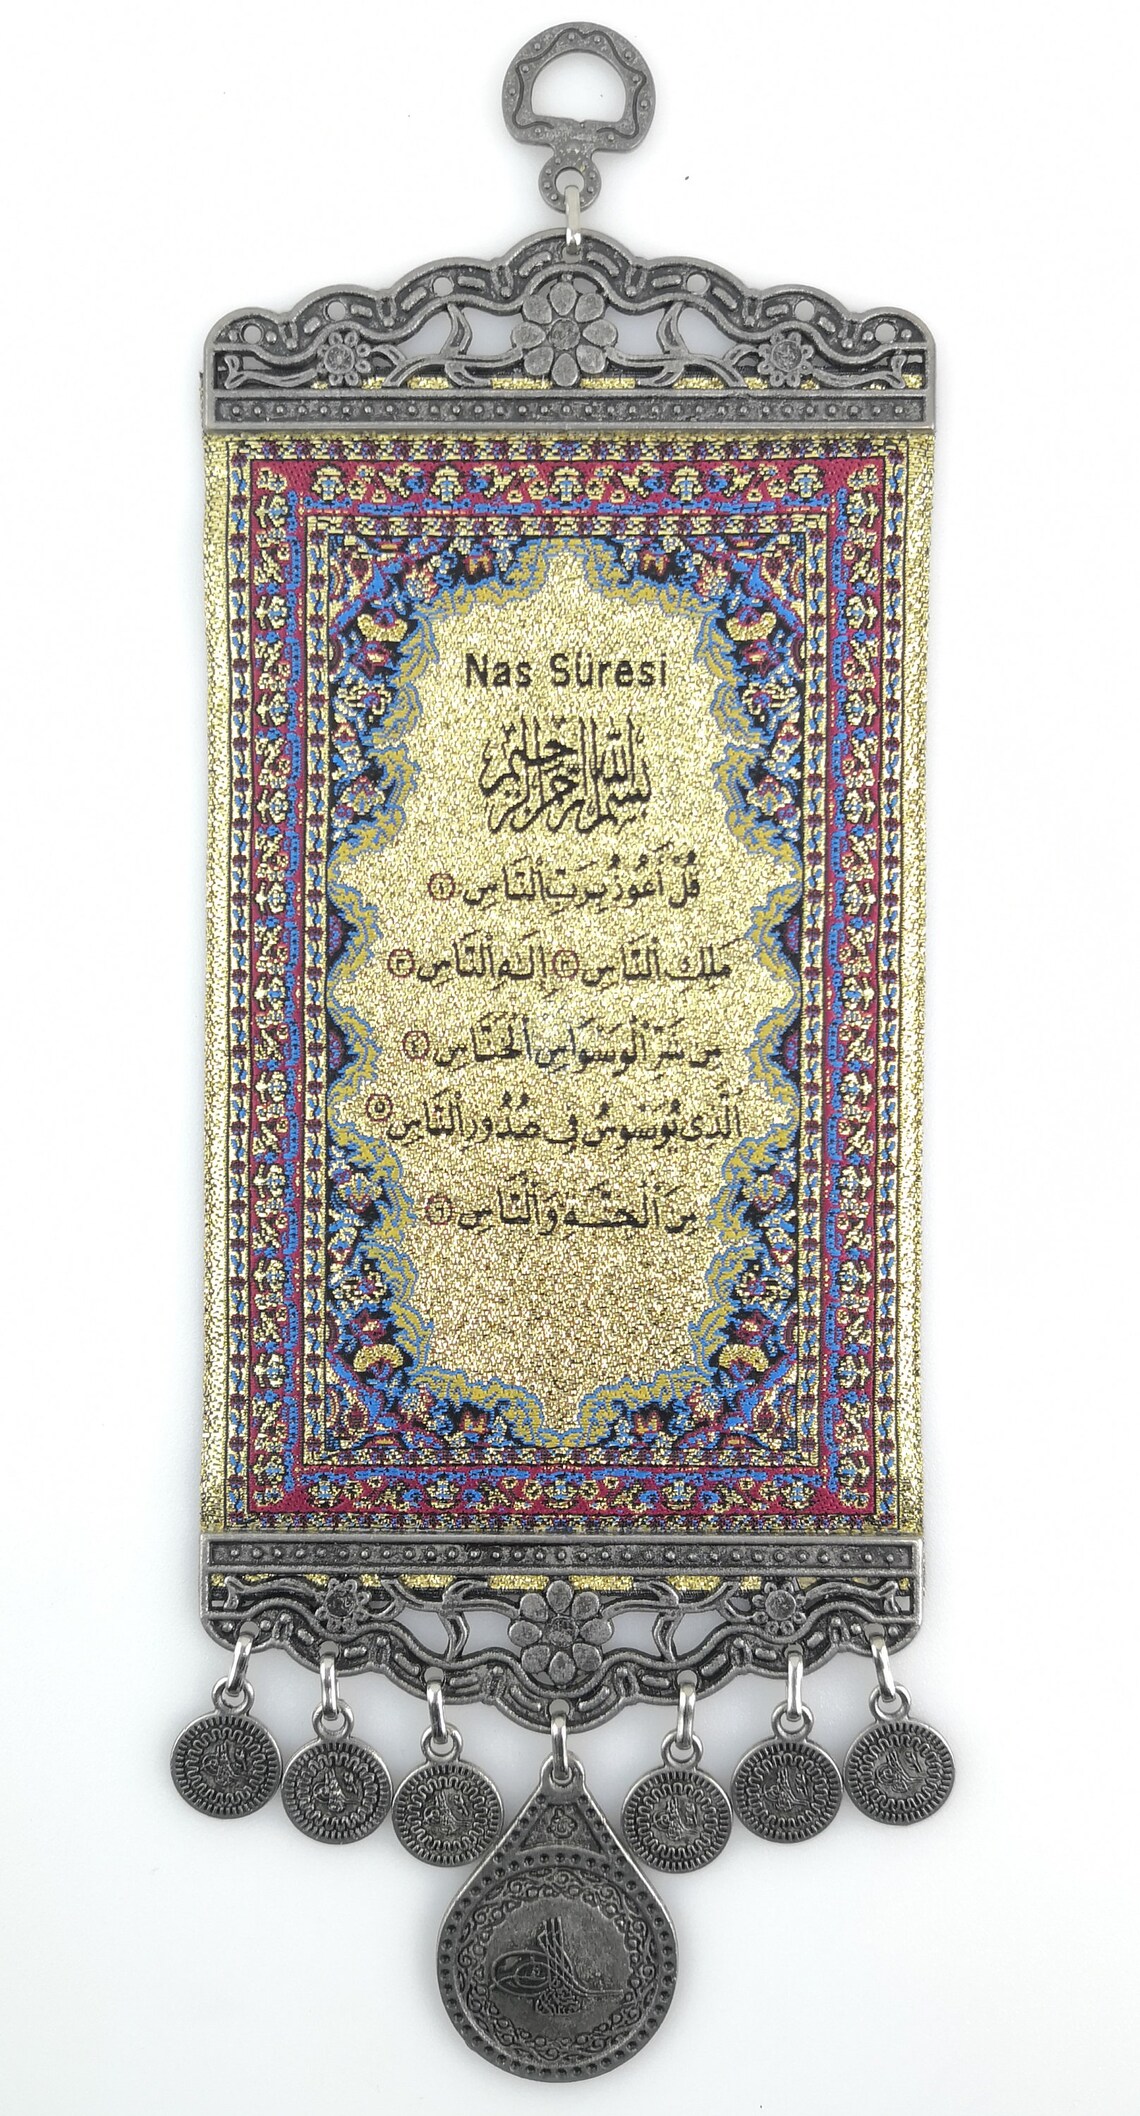 Nas Sûresi
بسم الله الرحمن الرحيم
قُلْ أَعُوذُ بِرَبِّ ٱلنَّاسِ ١
مَلِكِ ٱلنَّاسِ ٢ إِلَـٰهِ ٱلنَّاسِ ٣
مِن شَرِّ ٱلْوَسْوَاسِ ٱلْخَنَّاسِ ٤
ٱلَّذِى يُوَسْوِسُ فِى صُدُورِ ٱلنَّاسِ ٥
مِنَ ٱلْجِنَّةِ وَٱلنَّاسِ ٦